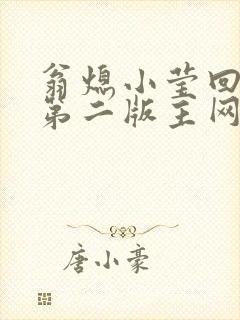 翁熄小莹回
第二版主网
唐小豪